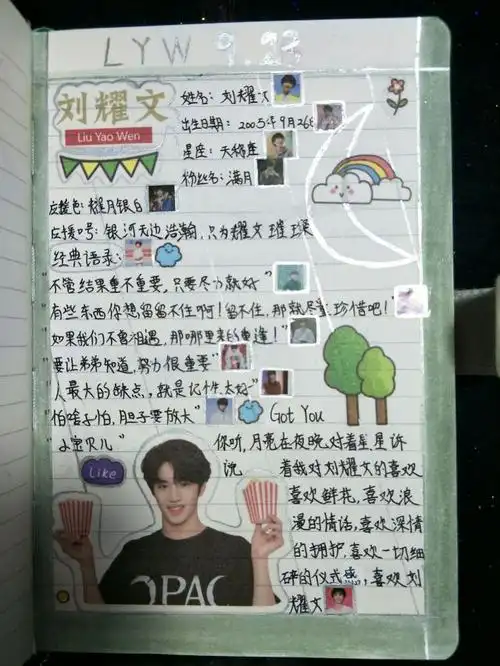 LYW 9.23
刘耀文
Liu Yao Wen
姓名：刘耀文
出生日期：2005年9月23日
星座：天秤座
粉丝名：满月
应援色：耀月银白
应援口号：银河无边浩瀚，只为耀文璀璨
经典语录：
"不管结果重不重要，只要尽力就好"
"有些东西你想留留不住啊！留不住，那就尽量珍惜吧！
"如果我们不曾相遇，那哪里来的重逢！"
"要让弟弟知道，努力很重要"
"人最大的缺点，就是记性太好"
"怕啥子怕，胆子要放大" Got You
"小宝贝儿"
你听，月亮在夜晚对着星星诉
说
着我对刘耀文的喜欢
喜欢鲜花，喜欢浪
漫的情话，喜欢深情
的拥护，喜欢一切细
碎的仪式感，喜欢刘
耀文
Like
OPAC